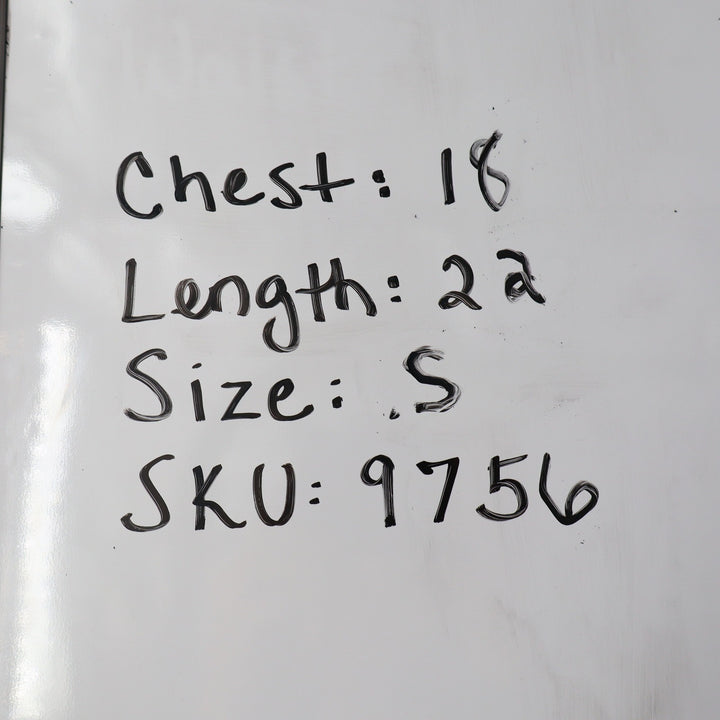 Chest: 18
Length: 22
Size: S
SKU: 9756